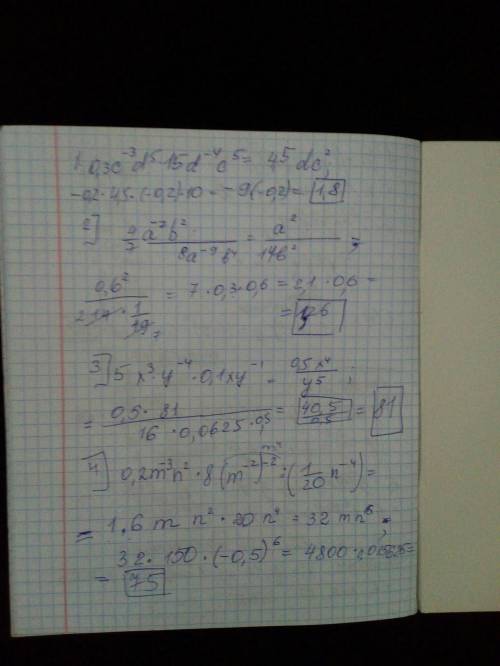 1. 0,3c⁻³d⁵·15d⁻⁴c⁵ = 4,5 dc²;
-0,2·4,5·(-0,2)·10 = -9(-0,2) = 1,8
2] 4/7 a⁻⁷b² / 8a⁻⁹b⁴ = a² / 14b² ;
0,6² / = 7·0,3·0,6 = 2,1·0,6 =
=
3] 5x³·y⁻⁴·0,1xy⁻¹ = 0,5x⁴ / y⁵ ;
= 0,5·81 / 16·0,0625·0,5 = 40,5 / 0,5 = 81
4] 0,2m⁻³n²·8(m⁻²)⁻² : (1/20 n⁻⁴) =
m⁴
= 1.6 m n²·20n⁴ = 32 mn⁶ ;
32·150·(-0,5)⁶ = 4800·
= 75